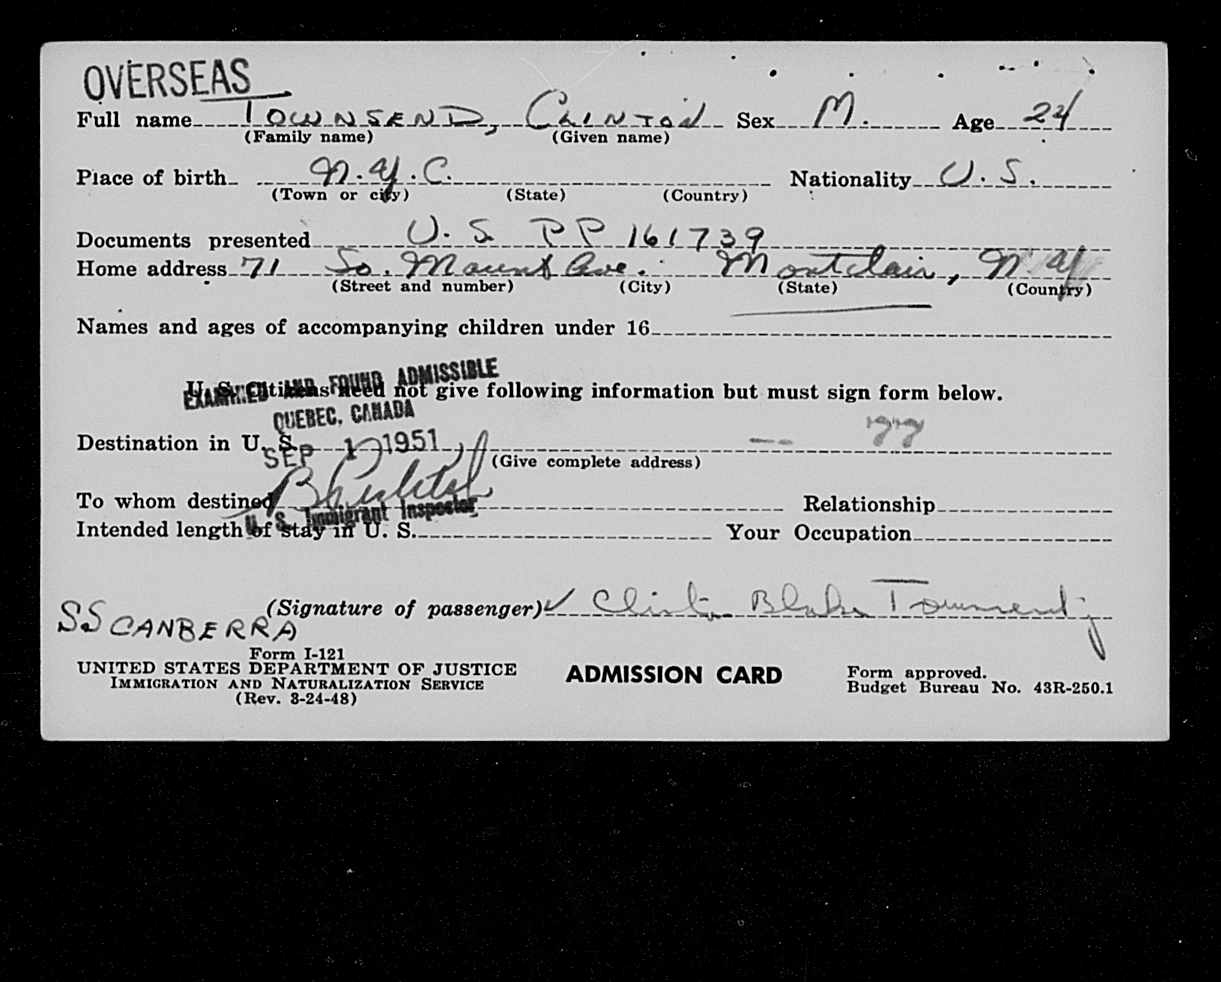 OVERSEAS
Full name TOWNSEND, CLINTON Sex M. Age 24
(Family name) (Given name)
Place of birth N.Y.C. Nationality U.S.
(Town or city) (State) (Country)
Documents presented U.S. PP 161739
Home address 71 So. Mount Ave. Montclair, N
(Street and number) (City) (State) (Country)
Names and ages of accompanying children under 16
U. S. Citizens need not give following information but must sign form below.
EXAMINED AND FOUND ADMISSIBLE
QUEBEC, CANADA
Destination in U. S. -- 77
SEP 1951
(Give complete address)
To whom destined Relationship
U. S. Immigrant Inspector
Intended length of stay in U. S. Your Occupation
(Signature of passenger) ✓ Clinton Blake Townsend
SS CANBERRA
Form I-121
UNITED STATES DEPARTMENT OF JUSTICE ADMISSION CARD Form approved.
IMMIGRATION AND NATURALIZATION SERVICE Budget Bureau No. 43R-250.1
(Rev. 3-24-48)